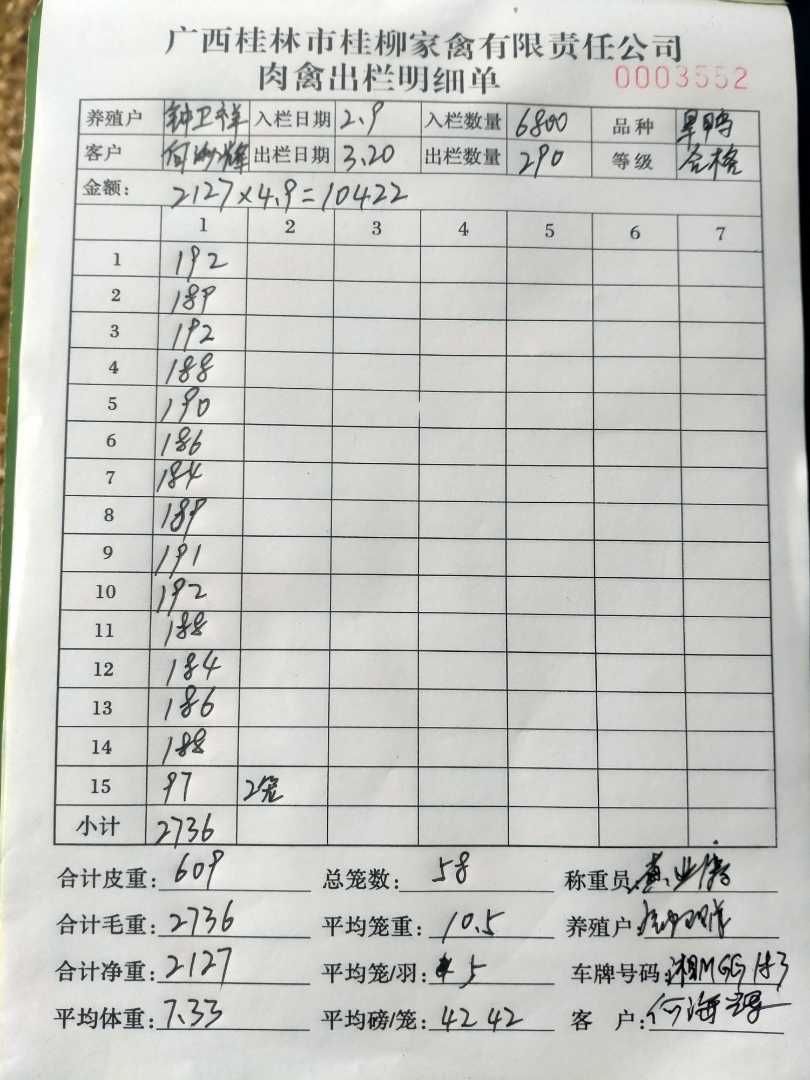 广西桂林市桂柳家禽有限责任公司
肉禽出栏明细单 0003552
养殖户 钟卫祥 入栏日期 2.9 入栏数量 6800 品种 旱鸭
客户 何海辉 出栏日期 3.20 出栏数量 290 等级 合格
金额: 2127×4.9=10422
1 2 3 4 5 6 7
1 192
2 189
3 192
4 188
5 190
6 186
7 184
8 189
9 191
10 192
11 188
12 184
13 186
14 188
15 97 2笼
小计 2736
合计皮重: 609 总笼数: 58 称重员:
合计毛重: 2736 平均笼重: 10.5 养殖户:
合计净重: 2127 平均笼/羽: 5 车牌号码:
平均体重: 7.33 平均磅/笼: 42.42 客 户: